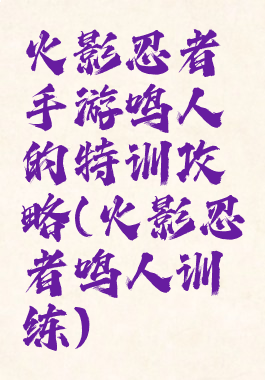 火影忍者
手游鸣人
的特训攻
略(火影忍
者鸣人训
练)